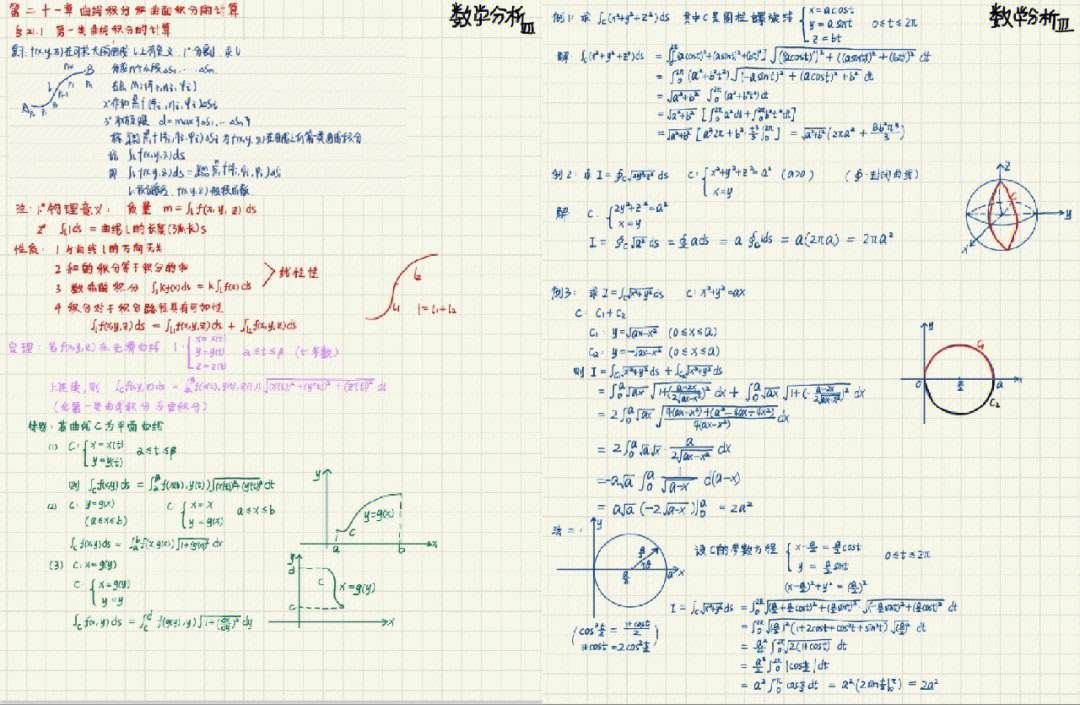 第二十一章 曲线积分和曲面积分的计算
数学分析III
§21.1 第一类曲线积分的计算
注:1° 物理意义: 质量 m=∫ₗf(x,y,z)ds
2° ∫ₗ1ds = 曲线l的长度(弧长)s
性质: 1 与曲线l的方向无关
2 和的积分等于积分的和
3 数乘的积分 ∫ₗkf(x)ds = k∫ₗf(x)ds
线性性
4 积分对于积分路径具有可加性
∫ₗf(x,y,z)ds = ∫ₗ₁f(x,y,z)ds + ∫ₗ₂f(x,y,z)ds
l₂
l₁
l=l₁+l₂
定理: 若f(x,y,z)在光滑曲线 l: { x=x(t) y=y(t) z=z(t) α≤t≤β (t:参数)
上连续,则
(化第一类曲线积分为定积分)
特殊: 若曲线C为平面曲线
(1) C: { x=x(t) y=y(t) α≤t≤β
则 ∫_C f(x,y)ds = ∫_α^β f(x(t),y(t))√((x'(t))²+(y'(t))²) dt
(2) C: y=g(x) (a≤x≤b) C: { x=x y=g(x) a≤x≤b
∫_C f(x,y)ds = ∫_a^b f(x,g(x))√(1+(g'(x))²) dx
(3) C: x=g(y)
C: { x=g(y) y=y
∫_C f(x,y)ds = ∫_c^d f(g(y),y)√(1+(dx/dy)²) dy
y
y=g(x)
C
a
b
x
y
d
C
x=g(y)
c
x
数学分析III
例1: 求 ∫_C(x²+y²+z²)ds 其中C是圆柱螺旋线 { x=acost y=asint z=bt 0≤t≤2π
解 ∫_C(x²+y²+z²)ds = ∫_0^{2π}[(acost)²+(asint)²+(bt)²]√(((acost)')²+((asint)')²+((bt)')²) dt
= ∫_0^{2π}(a²+b²t²)√((-asint)²+(acost)²+b²) dt
= √(a²+b²) ∫_0^{2π}(a²+b²t²)dt
= √(a²+b²) [∫_0^{2π}a²dt+∫_0^{2π}b²t²dt]
= √(a²+b²) [a²2π+b²·t³/3|_0^{2π}] = √(a²+b²)(2πa²+8b²π³/3)
例2: 求 I=∮_C√(2y²+z²) ds C: { x²+y²+z²=a² (a>0) x=y (∮-封闭曲线)
解 C: { 2y²+z²=a² x=y
I = ∮_C√a² ds = ∮_C a ds = a∮_C ds = a(2πa) = 2πa²
z
C
y
x
例3: 求 I=∫_C√(x²+y²) ds C: x²+y²=ax
C: C₁+C₂
C₁: y=√(ax-x²) (0≤x≤a)
C₂: y=-√(ax-x²) (0≤x≤a)
则 I=∫_{C₁}√(x²+y²)ds+∫_{C₂}√(x²+y²)ds
= ∫_0^a√(ax)√(1+((a-2x)/(2√(ax-x²)))²) dx + ∫_0^a√(ax)√(1+(-(a-2x)/(2√(ax-x²)))²) dx
= 2∫_0^a√(ax)√((4(ax-x²)+(a²-4ax+4x²))/(4(ax-x²))) dx
= 2∫_0^a√a√x·a/(2√(ax-x²)) dx
=-a√a∫_0^a 1/√(a-x) d(a-x)
= a√a(-2√(a-x))|_0^a = 2a²
y
C₁
0
a/2
a
x
C₂
法二:
y
a/2
θ
a/2
a
x
设C的参数方程 { x-a/2=a/2cost y=a/2sint 0≤t≤2π
(x-a/2)²+y²=(a/2)²
I=∫_C√(x²+y²)ds = ∫_0^{2π}√((a/2+a/2cost)²+(a/2sint)²)·√((-a/2sint)²+(a/2cost)²) dt
= ∫_0^{2π}√((a/2)²(1+2cost+cos²t+sin²t))√((a/2)²) dt
= a²/4∫_0^{2π}√(2(1+cost)) dt
= a²/2∫_0^{2π}|cos t/2|dt
= a²∫_0^π cos t/2 dt = a²(2sin t/2|_0^π) = 2a²
(cos² t/2=(1+cost)/2
1+cost=2cos² t/2)